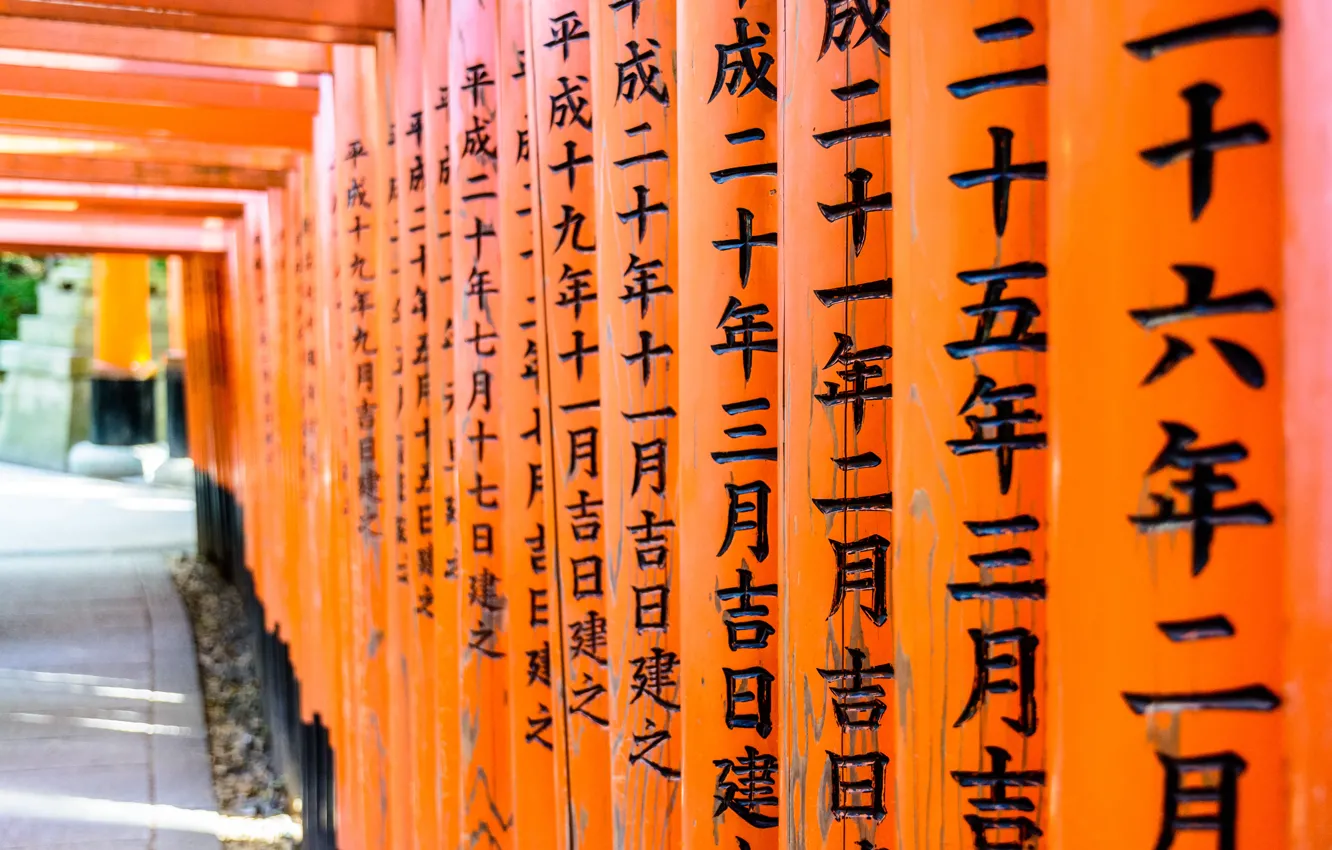 二十六年二月
二十五年三月吉
成二十一年二月吉日
成二十年三月吉日建
成二十年十一月吉日建之
平成十九年十一月吉日建之
平成二十年七月十七日建之
平成二十年五月十五日建之
平成十九年九月吉日建之